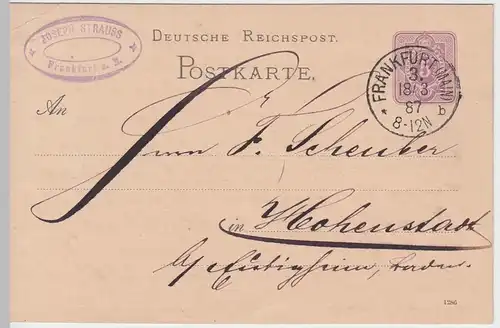 JOSEPH STRAUSS
Frankfurt a. M.
DEUTSCHE REICHSPOST.
POSTKARTE.
FRANKFURT (MAIN)
3.
18/3
87
8-12N
* b
An
Herrn F. Scheuber
in Hohenstadt
b/ Eubigheim, Baden.
1286